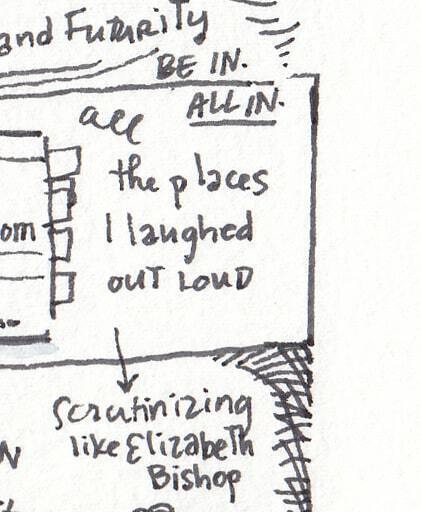 and Futurity
BE IN.
ALL IN.
all
the places
I laughed
om
OUT LOUD
Scrutinizing
like Elizabeth
N
Bishop